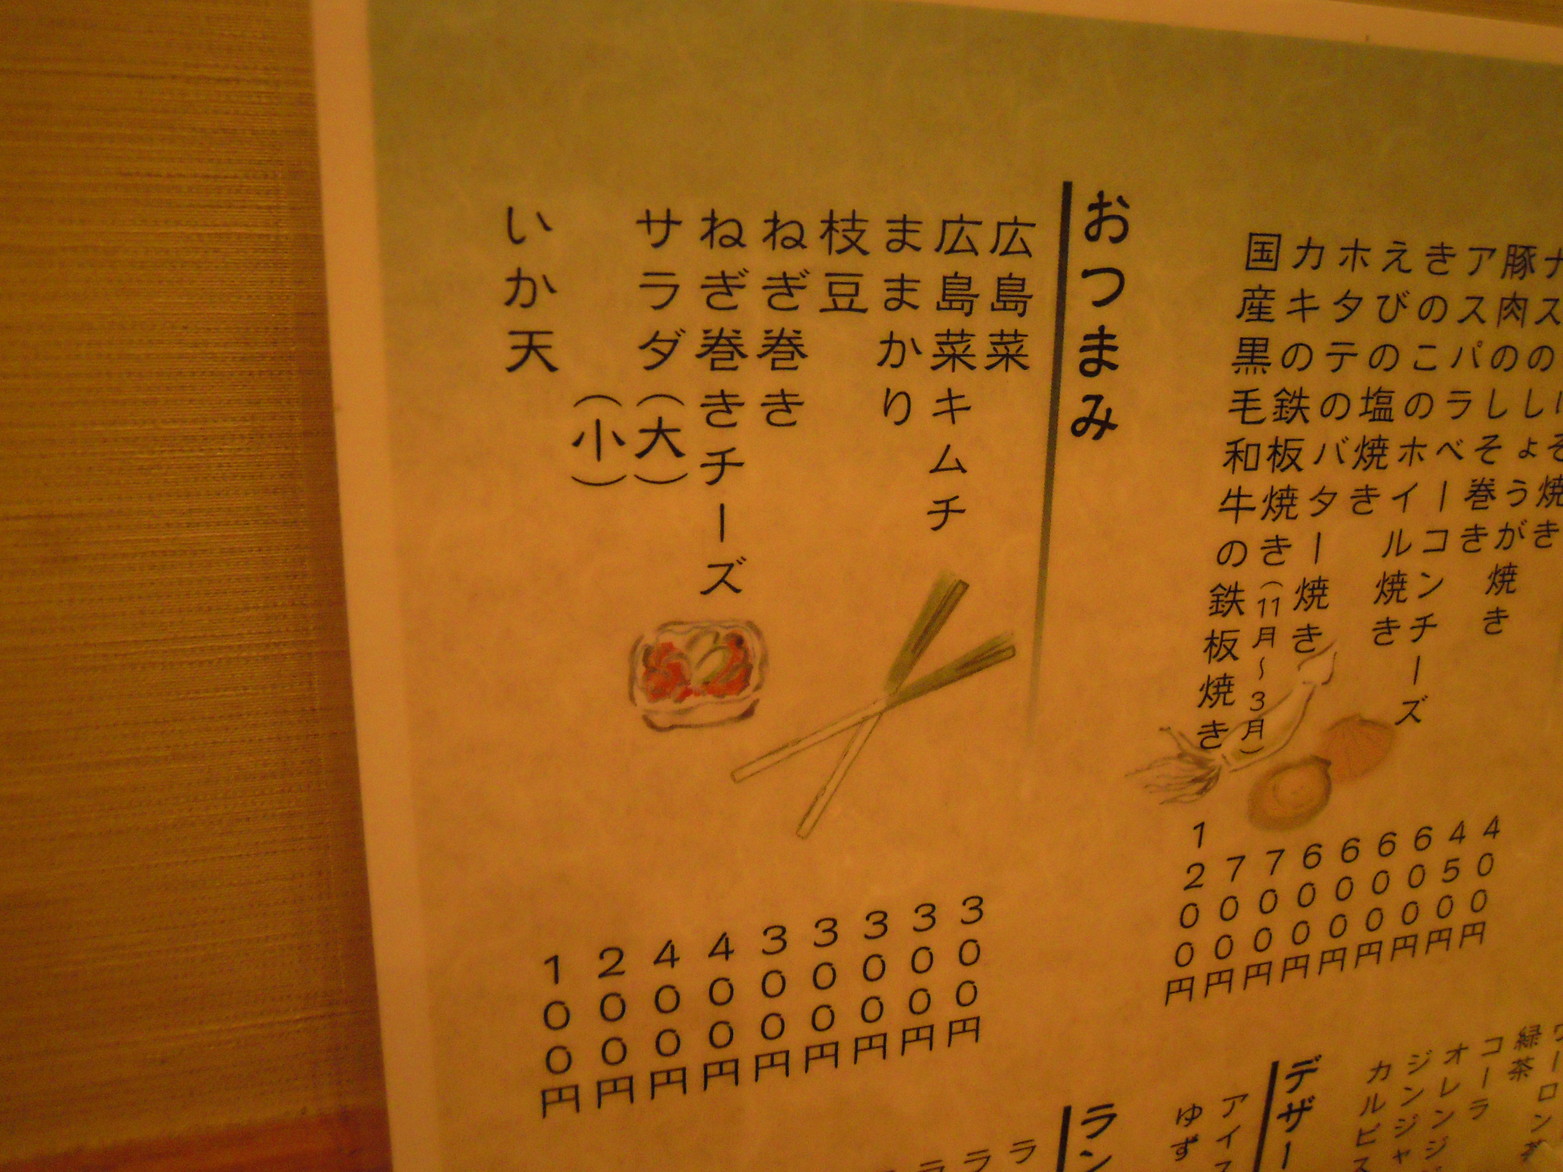 ナスのしょうが焼き
豚肉のしそ巻き
アスパラベーコンチーズ
きのこのホイル焼き
えびの塩焼き
ホタテのバター焼き
カキの鉄板焼き(11月〜3月)
国産黒毛和牛の鉄板焼き
400円
450円
600円
600円
600円
600円
700円
700円
1200円
おつまみ
広島菜
広島菜キムチ
ままかり
枝豆
ねぎ巻き
ねぎ巻きチーズ
サラダ(大)
(小)
いか天
300円
300円
300円
300円
300円
400円
400円
200円
100円
緑茶
コーラ
オレンジ
ジンジャ
カルピス
デザー
アイス
ゆず
ラン